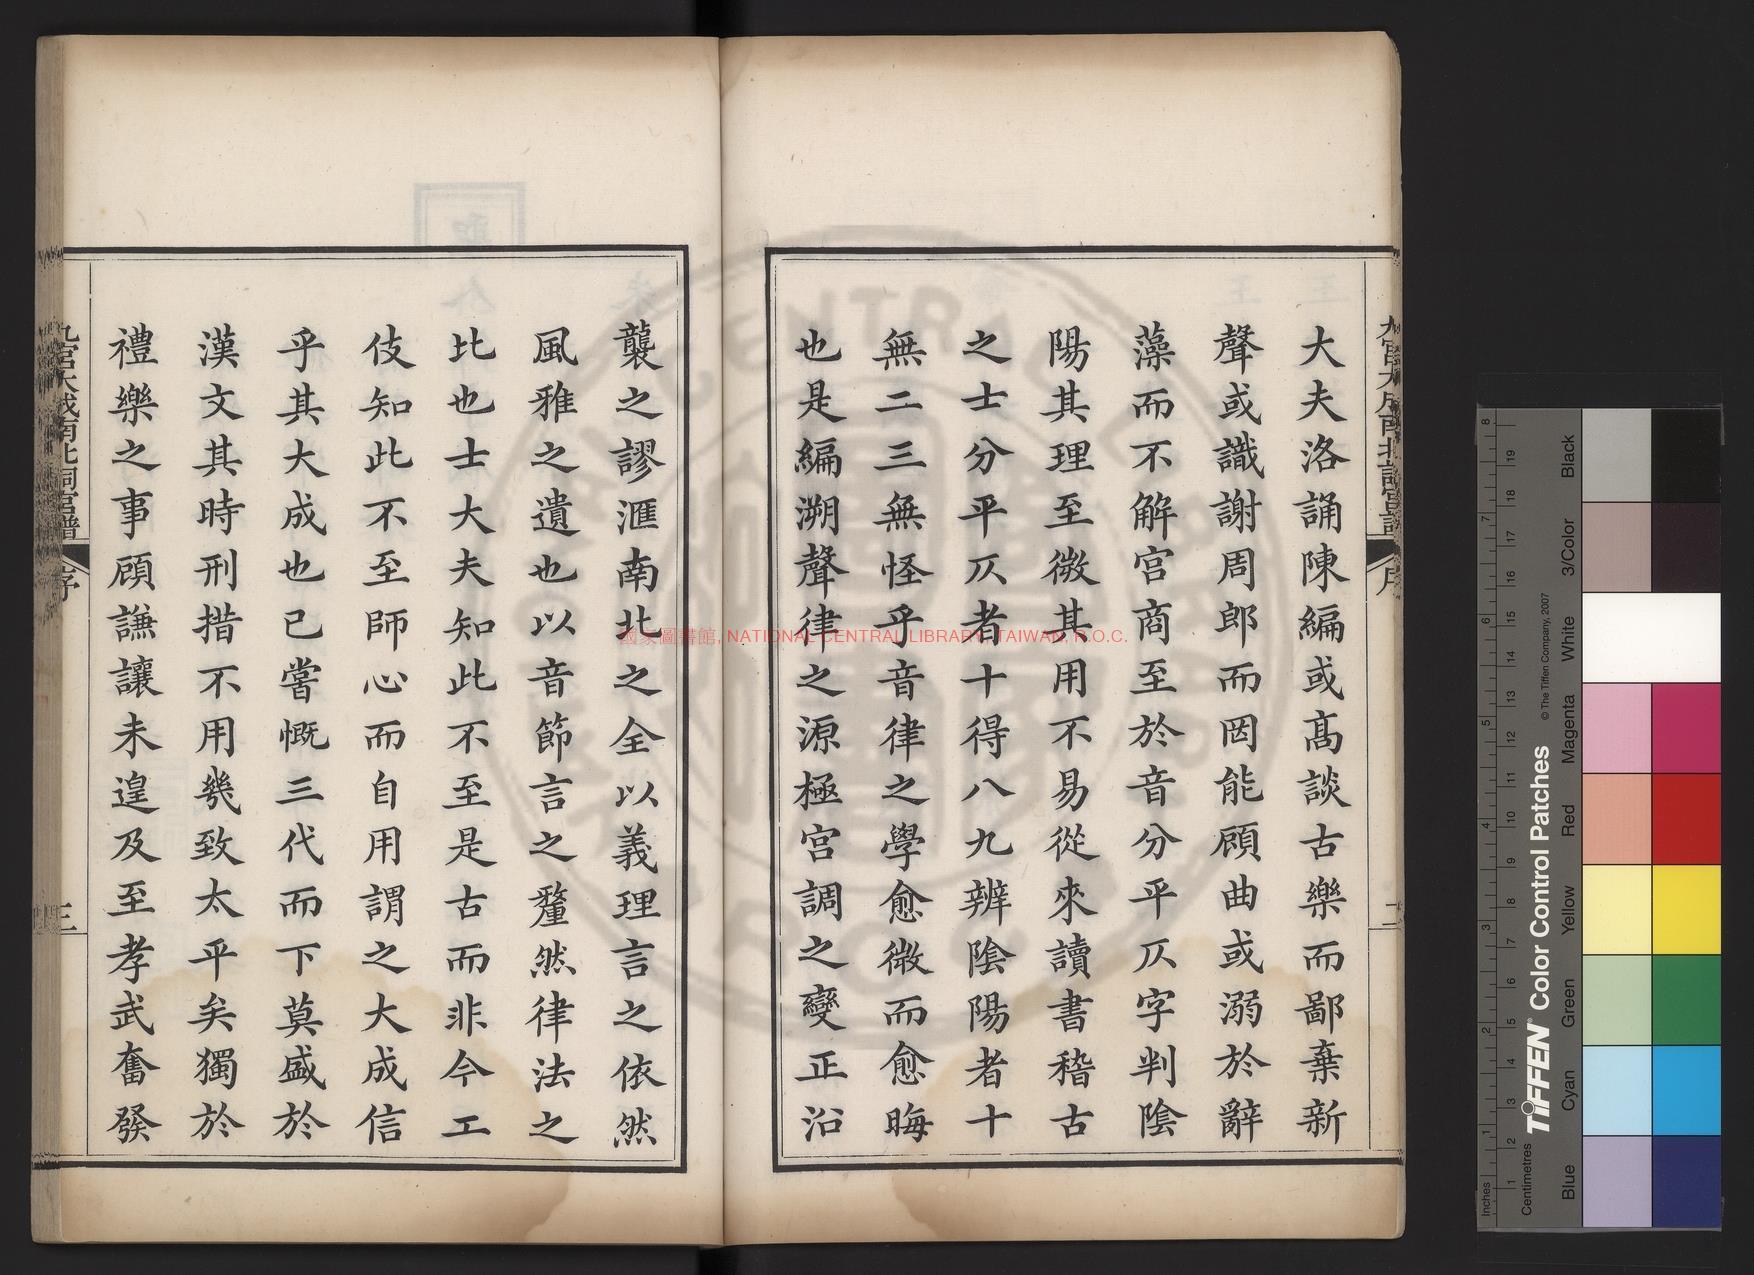 大夫洛誦陳編或高談古樂而鄙棄新
聲或識謝周郎而罔能顧曲或溺於辭
藻而不解宮商至於音分平仄字判陰
陽其理至微其用不易從來讀書稽古
之士分平仄者十得八九辨陰陽者十
無二三無怪乎音律之學愈微而愈晦
也是編溯聲律之源極宮調之變正沿
襲之謬滙南北之全以義理言之依然
風雅之遺也以音節言之釐然律法之
比也士大夫知此不至是古而非今工
伎知此不至師心而自用謂之大成信
乎其大成也已嘗慨三代而下莫盛於
漢文其時刑措不用幾致太平矣獨於
禮樂之事顧謙讓未遑及至孝武奮發
九宮大成南北詞宮譜
序
三
國家圖書館, NATIONAL CENTRAL LIBRARY, TAIWAN, R.O.C.
Inches
Centimetres
TIFFEN® Color Control Patches
© The Tiffen Company, 2007
Blue
Cyan
Green
Yellow
Red
Magenta
White
3/Color
Black